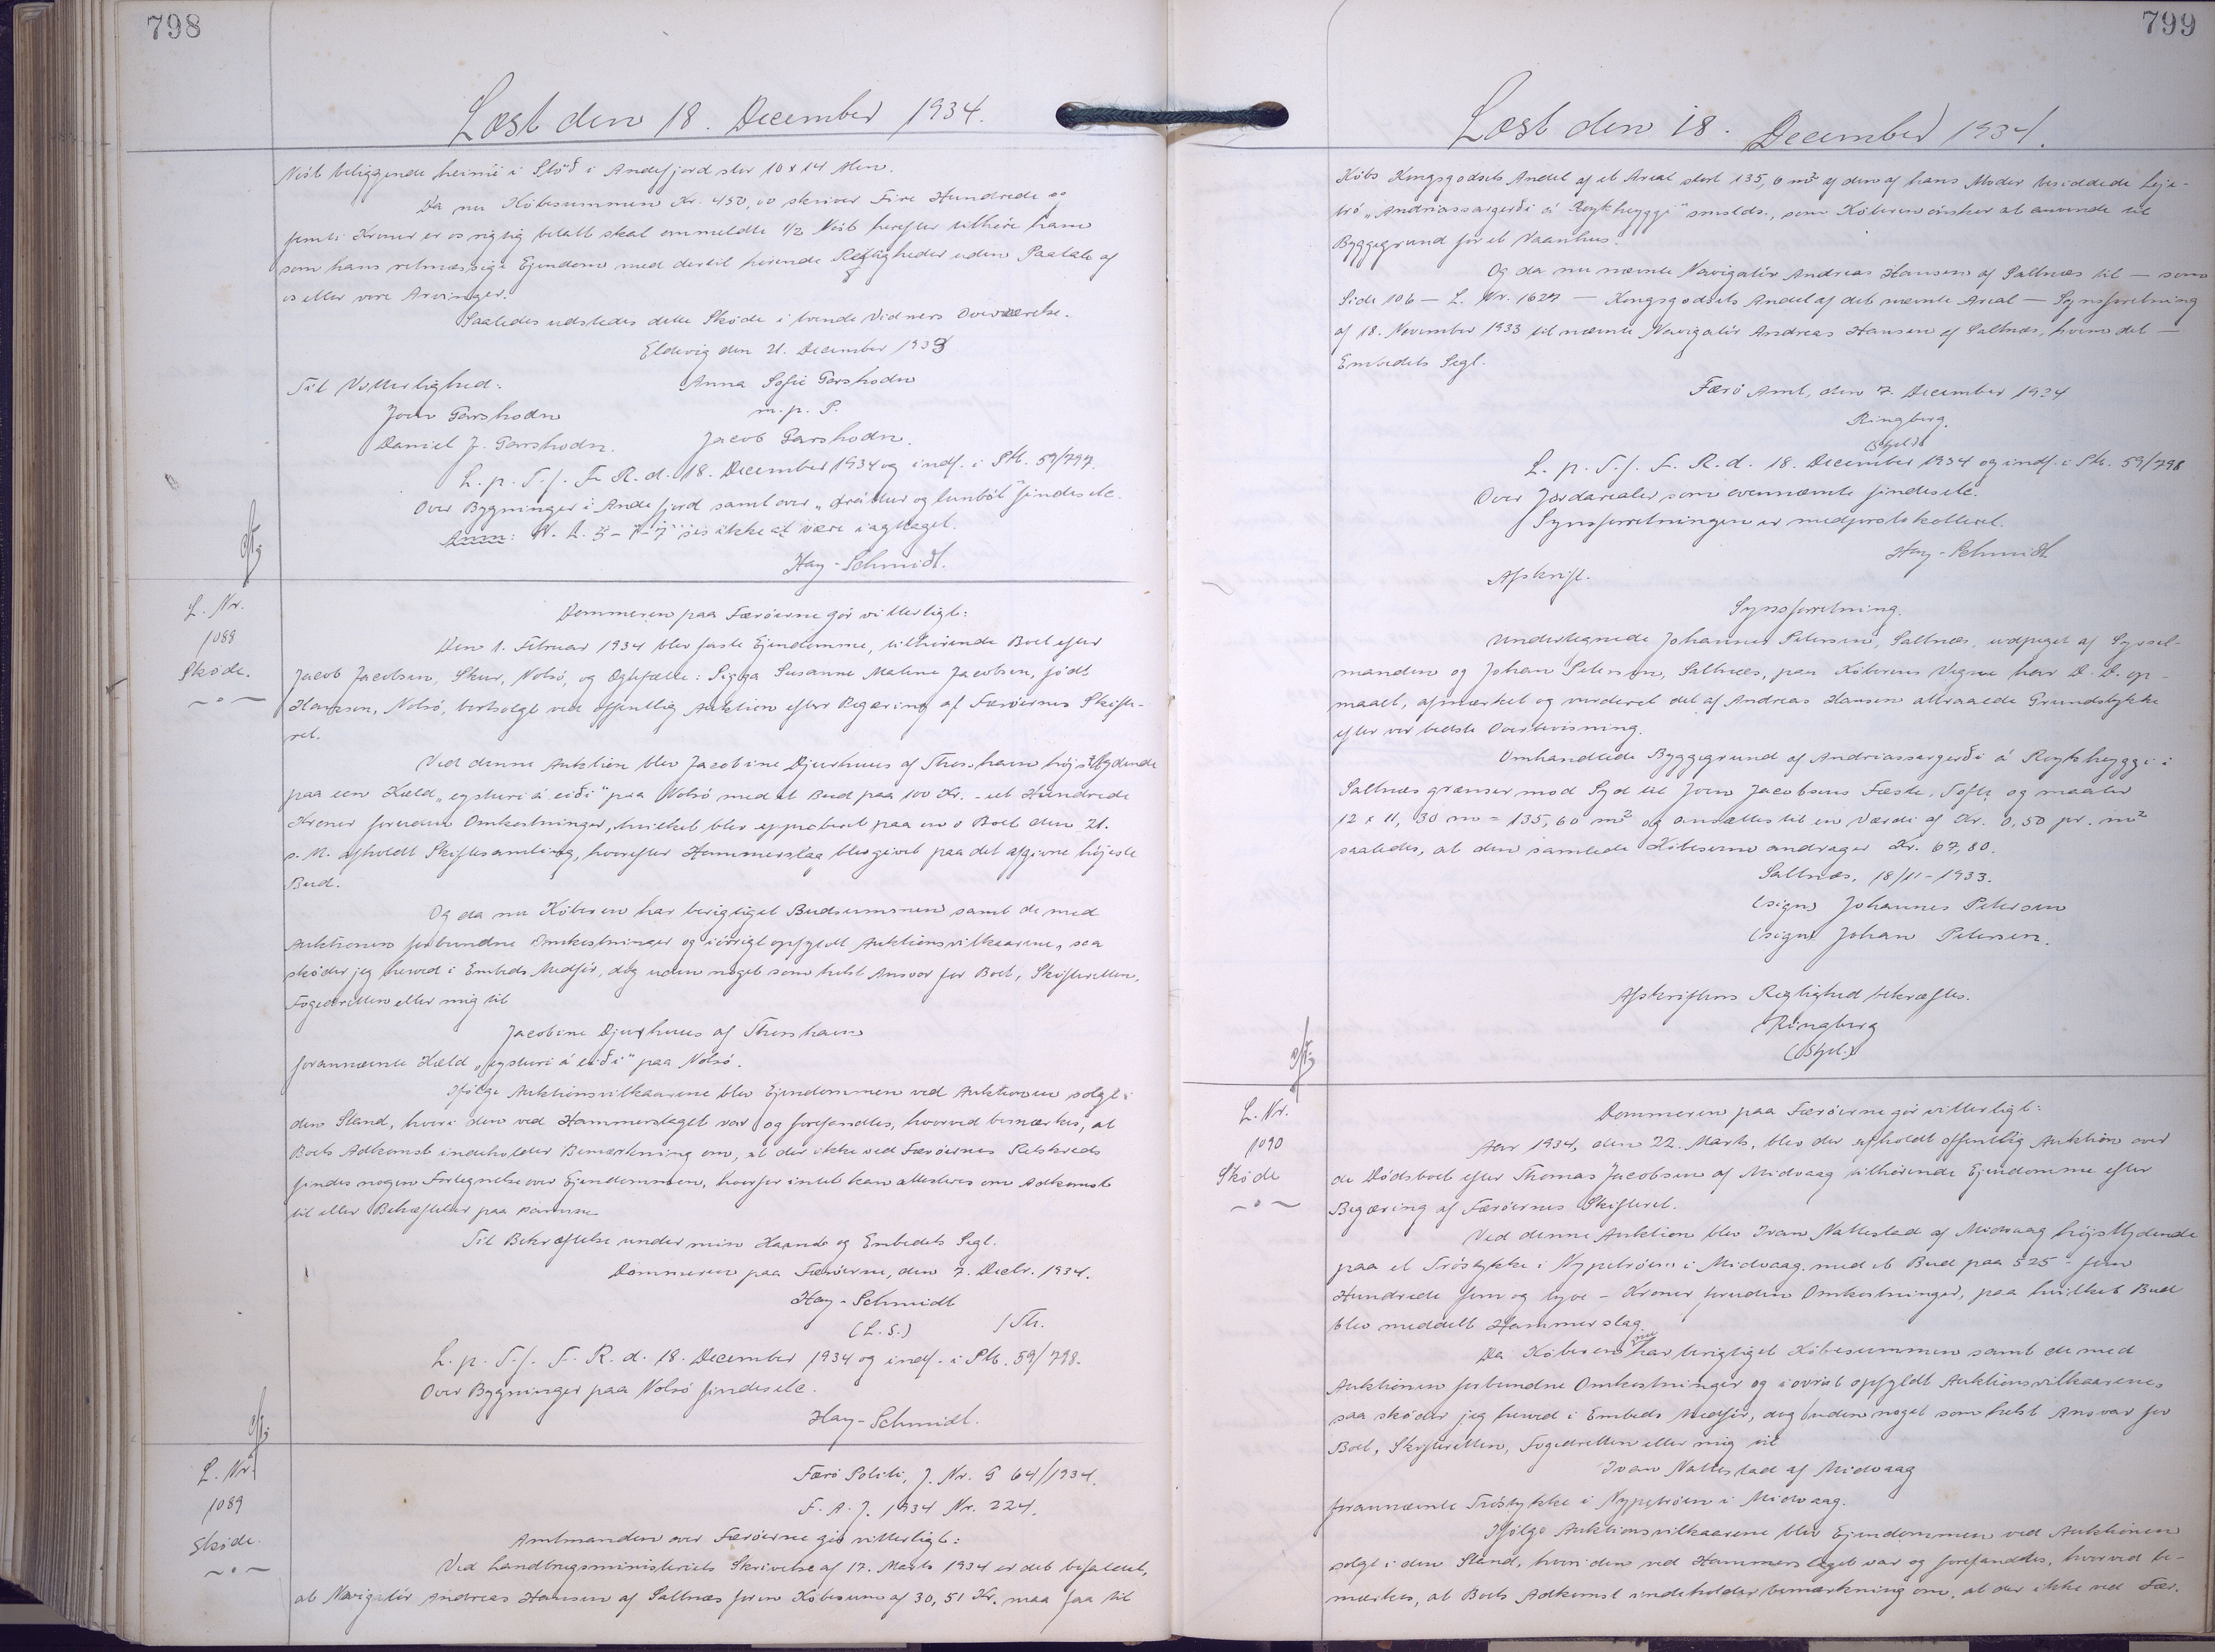 798
Læst den 18. December 1934.
Nöst beliggende heimi i Stöð i Andefjord stor 10 x 14 Alen.
Da nu Köbesummen Kr. 450,00 skriver Fire Hundrede og
femti Kroner er os rigtig betalt skal ommeldte 1/2 Nöst herefter tilhöre ham
som hans retmæssige Ejendom med dertil hörende Rettigheder uden Paatale af
os eller vore Arvinger.
Saaledes udstedes dette Sköde i tvende Vidners Overværelse.
Eldevig den 21. December 1933
Til Vitterlighed:
Anna Sofie Torshodn
m. p. P.
Joen Torshodn
Daniel J. Torshodn.
Jacob Torshodn.
L. p. T. f. F. R. d. 18. December 1934 og indf. i Ptk. 59/797.
Over Bygninger i Andefjord samt over findes ele.
Anm: N. L. 5 - 7 - 7 ses ikke at være iagttaget.
Hay-Schmidt.
L. Nr.
1088
Sköde.
Dommeren paa Færöerne gör vitterligt:
Den 1. Februar 1934 blev faste Ejendomme, tilhörende Boet efter
Jacob Jacobsen, Skur, Nolsö, og Ægtefælle: Sigga Susanne Maline Jacobsen, födt
Hansen, Nolsö, bortsolgt ved offentlig Auktion efter Begæring af Færöernes Skifte-
ret.
Ved denne Auktion blev Jacobine Djurhuus af Thorshavn højstbydende
paa een Hæld „eysturi á eiði" paa Nolsö med et Bud paa 100 Kr. - et Hundrede
Kroner foruden Omkostninger, hvilket blev approberet paa en i Boet den 21.
s. M. afholdt Skiftesamling, hvorefter Hammerslag blev givet paa det afgivne højeste
Bud.
Og da nu Köberen har berigtiget Budsummen samt de med
Auktionen forbundne Omkostninger og iövrigt opfyldt Auktionsvilkaarene, saa
sköder jeg herved i Embeds Medför, dog uden noget som helst Ansvar for Boet, Skifteretten,
Fogedretten eller mig til
Jacobine Djurhuus af Thorshavn
forannævnte Hæld „eysturi á eiði" paa Nolsö.
Ifölge Auktionsvilkaarene blev Ejendommen ved Auktionen solgt i
den Stand, hvori den ved Hammerslaget var og forefandtes, hvorved bemærkes, at
Boets Adkomst indeholder Bemærkning om, at der ikke ved Færöernes Retskreds
findes nogen Fortegnelse over Ejendommen, hvorfor intet kan attesteres om Adkomst
til eller Behæftelser paa samme
Til Bekræftelse under min Haand og Embedets Segl.
Dommeren paa Færöerne, den 7. Decbr. 1934.
Hay-Schmidt
(L. S.) /Th.
L. p. T. f. F. R. d. 18. December 1934 og indf. i Ptk. 59/798.
Over Bygninger paa Nolsö findes ele.
Hay-Schmidt.
L. Nr.
1089
Sköde.
Færö Politi, J. Nr. G 64/1934.
F. A. J. 1934 Nr. 224.
Amtmanden over Færöerne gör vitterligt:
Ved Landbrugsministeriets Skrivelse af 17. Marts 1934 er det befalet,
at Navigatör Andreas Hansen af Saltnæs for en Köbesum af 30,51 Kr. maa faa til
799
Læst den 18. December 1934.
Köbs Kongsgodsets Andel af et Areal stort 135,6 m² af den af hans Moder besiddede Leje-
trö „Andriassargerði á Roykheyggi" smstds., som Köberen önsker at anvende til
Byggegrund for et Vaanhus.
Og da nu nævnte Navigatör Andreas Hansen af Saltnæs til — som
Side 106 — L. Nr. 1627 — Kongsgodsets Andel af det nævnte Areal — Synsforretning
af 18. November 1933 til nævnte Navigatör Andreas Hansen af Saltnæs, hvem det —
Embedets Segl.
Færö Amt, den 7. December 1934
Ringberg.
L. p. T. f. F. R. d. 18. December 1934 og indf. i Ptk. 59/798
Over Jordarealer som ovennævnte findes ele.
Synsforretningen er medprotokolleret.
Hay-Schmidt
Afskrift.
Synsforretning.
Undertegnede Johannes Petersen, Saltnæs, udpeget af Syssel-
manden og Johan Petersen, Saltnæs, paa Köberens Vegne har D. D. op-
maalt, afmærket og vurderet det af Andreas Hansen attraaede Grundstykke
efter vor bedste Overbevisning.
Omhandlede Byggegrund af Andriassargerði á Roykheyggi i
Saltnæs grænser mod Syd til Joen Jacobsens Fæste, Toft, og maaler
12 x 11,30 m = 135,60 m² og ansættes til en Værdi af Kr. 0,50 pr. m²
saaledes, at den samlede Köbesum andrager Kr. 67,80.
Saltnæs, 18/11-1933.
(sign) Johannes Petersen
(sign) Johan Petersen.
Afskriftens Rigtighed bekræftes.
Ringberg
L. Nr.
1090
Sköde
Dommeren paa Færöerne gör vitterligt:
Aar 1934, den 22. Marts, blev der afholdt offentlig Auktion over
de Dödsboet efter Thomas Jacobsen af Midvaag tilhörende Ejendomme efter
Begæring af Færöernes Skifteret.
Ved denne Auktion blev Ivan Nattestad af Midvaag højstbydende
paa et Tröstykke i Nypetröen i Midvaag med et Bud paa 525 - fem
Hundrede fem og tyve - Kroner foruden Omkostninger, paa hvilket Bud
blev meddelt Hammerslag.
Da Köberen nu har berigtiget Köbesummen samt de med
Auktionen forbundne Omkostninger og iövrigt opfyldt Auktionsvilkaarene,
saa sköder jeg herved i Embeds Medför, dog uden noget som helst Ansvar for
Boet, Skifteretten, Fogedretten eller mig til
Ivan Nattestad af Midvaag
forannævnte Tröstykke i Nypetröen i Midvaag.
Ifölge Auktionsvilkaarene blev Ejendommen ved Auktionen
solgt i den Stand, hvori den ved Hammerslaget var og forefandtes, hvorved be-
mærkes, at Boets Adkomst indeholder bemærkning om, at der ikke ved Fær-